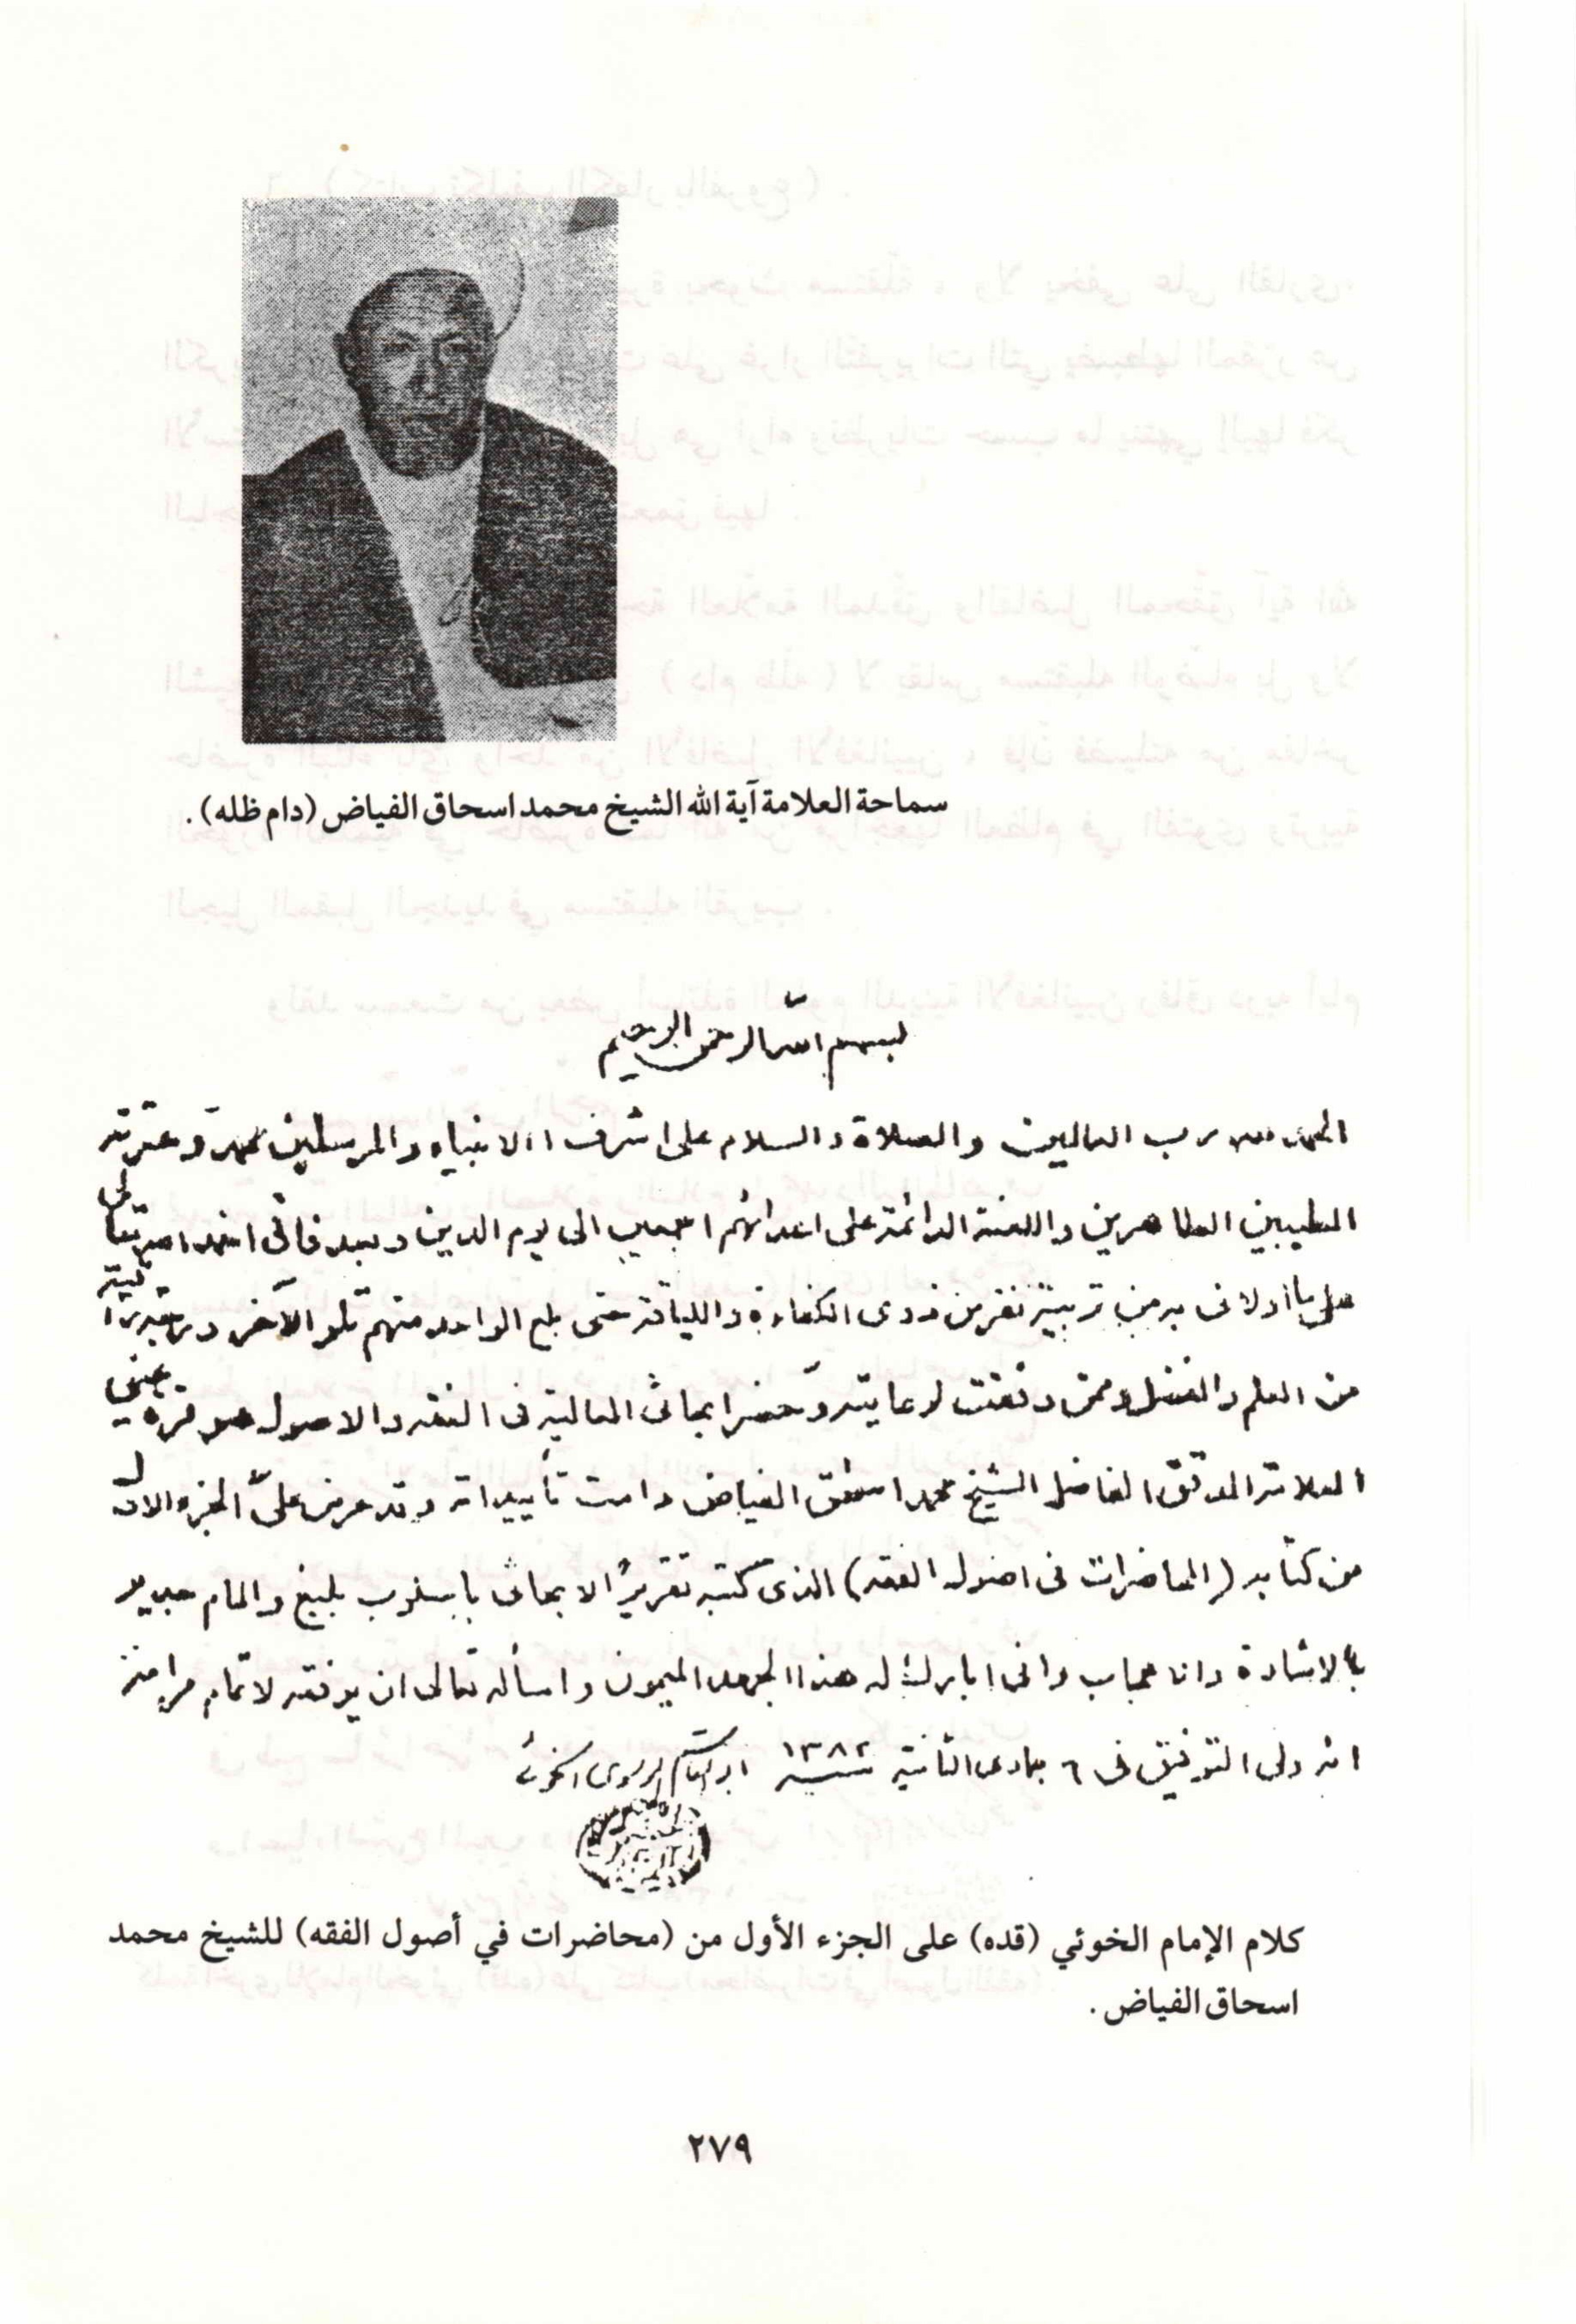 سماحة العلامة آية الله الشيخ محمد اسحاق الفياض (دام ظله) .
بسم الله الرحمن الرحيم
الحمد لله رب العالمين والصلاة والسلام على اشرف الانبياء والمرسلين محمد وعترته
الطيبين الطاهرين واللعنة الدائمة على اعدائهم اجمعين الى يوم الدين وبعد فانى احمد الله تعالى
على ما أولانى به من تربية نفر من ذوى الكفاءة واللياقة حتى بلغ الواحد منهم تلو الآخر درجة
من العلم والفضل وممن وفقت لرعايته وحضر ابحاثى العالية فى الفقه والاصول هو قرة عينى
العلامة المدقق الفاضل الشيخ محمد اسحق الفياض دامت تأييداته وقد عرض علىّ الجزء الاول
من كتابه (المحاضرات فى اصول الفقه) الذى كتبه تقريرًا لابحاثى باسلوب بليغ والمام جدير
بالاشادة والاعجاب وانى ابارك له هذا الجهد الميمون واسأله تعالى ان يوفقه لاتمام
انه ولى التوفيق فى ٦ جمادى الثانية سنة ١٣٨٢ ابو القاسم الموسوى الخوئى
كلام الإمام الخوئي (قده) على الجزء الأول من (محاضرات في أصول الفقه) للشيخ محمد
اسحاق الفياض .
٢٧٩